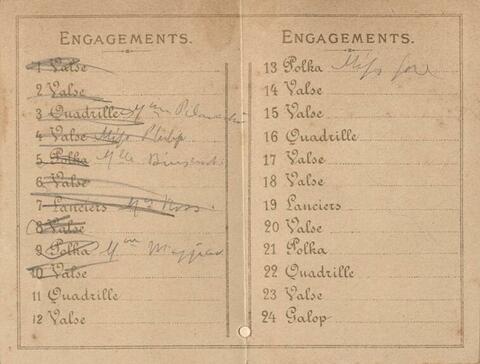 ENGAGEMENTS.
1 Valse
2 Valse
3 Quadrille
4 Valse Miss Philip
5 Polka Mlle
6 Valse
7 Lanciers Ross
8 Valse
9 Polka
10 Valse
11 Quadrille
12 Valse
ENGAGEMENTS.
13 Polka Miss
14 Valse
15 Valse
16 Quadrille
17 Valse
18 Valse
19 Lanciers
20 Valse
21 Polka
22 Quadrille
23 Valse
24 Galop